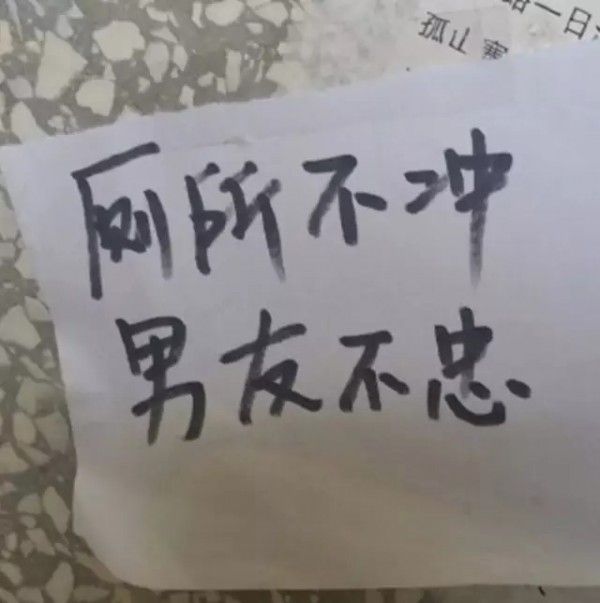 一日
孤止寒
厕所不冲
男友不忠